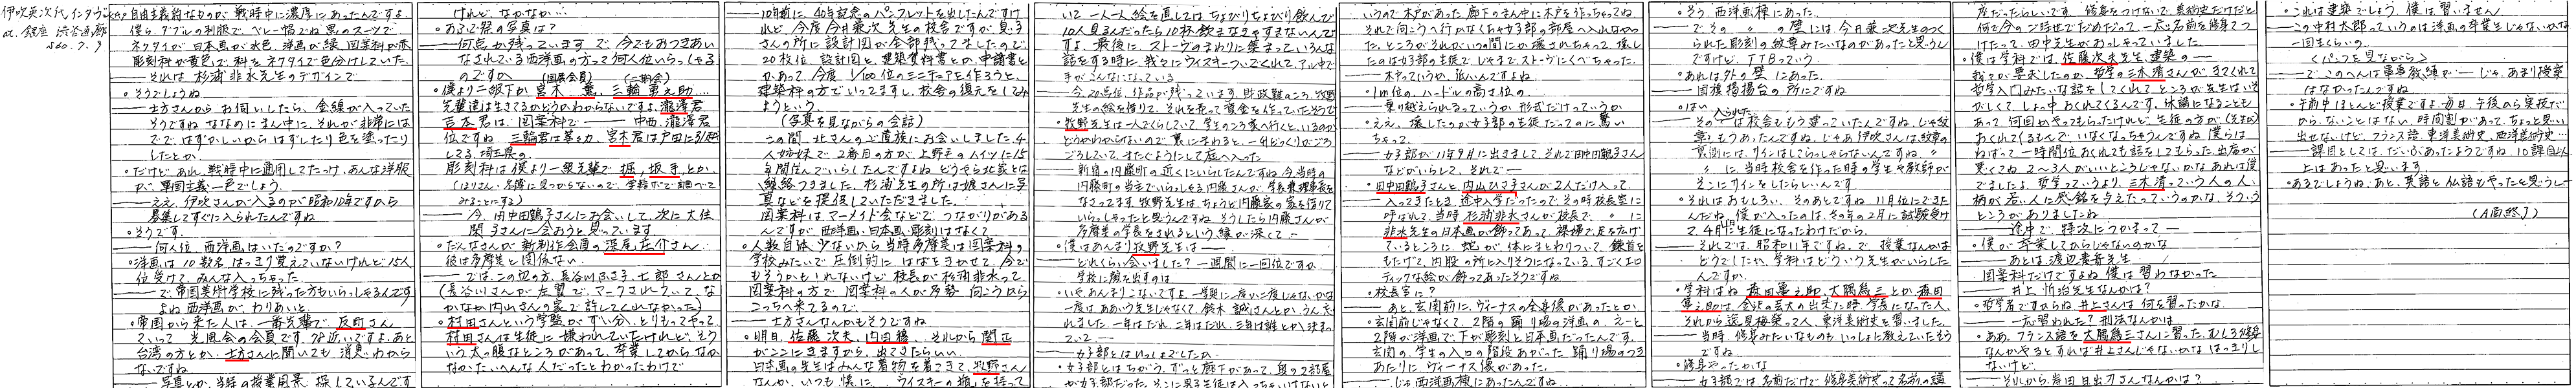 伊吹英次氏インタヴュー
at. 銀座 渋谷画廊
S60. 7. 9
自由主義的なものが、戦時中に濃厚にあったんですよ
僕ら、ダブルの制服で、ベレー帽でね 黒のスーツで
ネクタイが日本画が水色、洋画が緑、図案科が赤
彫刻科が黄色で、科をネクタイで色分けしていた。
―― それは、杉浦非水先生のデザインで
・そうでしょうね
―― 士方さんからお伺いしたら、金線が入っていた
そうですね ななめにまん中に、それが非常にはで
ではずかしいからはずしたり色を塗ったり
したとか、
・だけどあれ、戦時中に通用してたっけ、あんな洋服
が、軍国主義一色でしょう。
―― ええ、伊吹さんが入るのが昭和10年ですから
募集してすぐに入られたんですね
・そうです。
―― 何人位、西洋画はいたのですか?
・洋画は10数名、はっきり覚えていないけれど15人
位受けて、みんな入っちゃった
―― で、帝国美術学校に残った方もいらっしゃるんです
よね 西洋画が、わりあいと。
・帝国から来た人は、一番先輩で、反町さん
ていって、光風会の会員です。78近いですよ、あと
台湾の方とか、士方さんに聞いても、消息わから
ないですね
―― 写真とか、当時の授業風景、探しているんです
けれど、なかなか…
・あの頃の写真は?
―― 何点か残っています で、今でもおつきあい
なされている西洋画の方って何人位いらっしゃる
のですか
・僕より二級下が宮木 薫、三輪勇之助…
先輩達は生きてるかどうかわからないですよ、瀧澤君
吉本君は、図案科で ―― 中西、瀧澤君
位ですね 三輪君は葉山、宮木君は戸田に引越
してる、埼玉県の。
彫刻科は僕より一級先輩で、堀、坂手、とか、
―― 今、田中田鶴子さんにお会いして、次に大住
閑子さんに会おうと思っています
・だんなさんが新制作会員の深尾庄介さん、
彼は多摩美と関係ない。
―― では、この辺の方、長谷川ふさ子、七郎さんとか
(長谷川さんが左翼で、マークされていて、な
かなか内山さんの家で許してくれなかった)
・村田さんという学監がずい分、とりもってやって
村田さんは生徒に嫌われていたけれど、そう
いう太っ腹なところがあって、卒業してから、なか
なかたいへんな人だったとわかったわけで
―― 10年前に、40年記念のパンフレットを出したんですけ
れど、今度今井兼次先生の校舎ですが、息子
さんの所に設計図が全部残ってましたので
20枚位、設計図と、建築資料書とか、申請書と
かあって、今度、1/100位のミニチュアを作ろうと、
建築科の方でいってますし、校舎の復元をしてみ
ようという。
(写真を見ながらの会話)
この間、北さんのご遺族にお会いしました 4
人姉妹で、2番目の方が、上野毛のハイツに15
年間住んでいらしたんですよね どうやら北家とは
連絡つきました、杉浦先生の所は娘さんに写
真などを提供していただきました。
図案科は、マーメイド会などで、つながりがある
んですが、西洋画・日本画・彫刻はなくて
・人数自体、少ないから当時多摩美は図案科の
学校みたいで、圧倒的に、はばをきかせて、今で
もそうかもしれないけど、校長が杉浦非水って、
図案科の方で、図案科の人が多勢、向こうから
こっちへ来てるので、
―― 士方さんなんかもそうですね
・明日、佐藤次夫、内田穣、それから関正
がここにきますから、出てきたらいい
日本画の先生はみんな着物を着てきて、牧野さん
なんか、いつも懐に、ウィスキーの瓶を持って
いて、一人一人絵を直しては、ちょびりちょびり飲んで
10人見るんだったら10杯飲まなきゃすまないんで
すよ、最後に、ストーヴのまわりに集まっていろんな
話をする時に、我々にウィスキーついでくれて、アル中で
手がこんなになっている。
―― 今、20点位、作品が残っています、財政難のころ、牧野
先生の絵を借りて、それを売って資金を作っていたそうで
・牧野先生は一人でくらしていて、学生のころ家へ行くと、いるのか
どうかわからないので、裏にまわると、一升びんがごろ
ごろしていて、またぐようにして庭へ入った
―― 新宿の内藤町の近くにいらしたんですね 今、当時の
内藤町の当主でいらっしゃる内藤さんが、学長兼理事長を
なさってます、牧野先生は、ちょうど内藤家の家を借りて
いらっしゃったと思うんですね、そうしたら内藤さんが
多摩美の学長をされるという縁が深くて ―
・僕はあんまり牧野先生は ――
―― どれくらい会いました? 一週間に一回位ですか、
学校に顔を出すのは
・いや、あんまりこないですよ、一学期に一度か二度じゃないかな
一度は、ああいう先生じゃなくて、鈴木誠さんとか、うんざ
れました。一年はだれ、二年はだれ、三年は誰とか決まっ
ていて、
―― 女子部とはいっしょでしたか
・女子部とはちがう、ずっと廊下があって、奥の2部屋
が女子部だった、そこに男子生徒は入っちゃいけないと
いうので木戸があった 廊下のまん中に木戸を作っちゃってね
それで向こうへ行かなくちゃ女子部の部屋へ入れなかっ
た、ところがそれがいつの間にか壊されちゃって、壊し
たのは女子部の生徒で、じゃまでストーヴにくべちゃった。
―― 木戸っていうか、低いんですよね
・1m位の、ハードルの高さ位の、
―― 乗り越えられるっていうか、形式だけっていうか
・ええ、壊したのが女子部の生徒だってのに驚い
ちゃって、
―― 女子部が11年9月に出きまして、それで田中田鶴子さん
などがいらして、それで ――
・田中田鶴子さんと、内山ひさ子さんが2人だけ入って、
―― 入ってきたとき、途中入学だったので、その時校長室に
呼ばれて、当時、杉浦非水さんが校長で、〃 に
非水先生の日本画が飾ってあって 裸婦で足を広げ
ているところに、蛇が、体にまとわりついて、鎌首を
もたげて、内股の所に入りそうになっている、すごくエロ
ティックな絵が飾ってあったそうですね
・校長室に?
―― あと、玄関前に、ヴィーナスの全身像があったとか
・玄関前じゃなくて、2階の踊り場の洋画の、えーと
2階が洋画で、下が彫刻と日本画だったんです。
玄関の、学生の入口の階段あがった 踊り場のつき
あたりに ヴィーナス像があった。
―― じゃ西洋画棟にあったんですね
・そう、西洋画棟にあった。
―― で、その 〃 の壁には、今井兼次先生のつく
られた彫刻の紋章みたいなのがあったと思うん
ですけど、TTBっていう。
・あれは外の壁にあった。
―― 国旗掲揚台の所にですね
・はい
―― その入られたころは校舎がもう建っていたんですね、じゃ紋
章ももうあったんですね、じゃあ伊吹さんは、紋章の
裏側には、サインはしてらっしゃらないんですね 〃
〃 に、当時校舎を作った時の学生や教師が
そこにサインをしたらしいんです
・それはおもしろい、そのあとですね、11月位にできた
んだね、僕が入ったのは、その年の2月に試験受け
て、4月に生徒になったわけだから。
―― それでは、昭和11年ですね。で、授業なんかは
どうでしたか、学科はどういう先生がいらした
んですか、
・学科はね、森田亀之助、大隅為三とか、森田
亀之助は、金沢の芸大の出来た時 学長になった人、
それから逸見梅栄って人、東洋美術史を習いました。
―― 当時、修身みたいなものもいっしょに教えていたそう
ですね
・修身やったかな
―― 女子部では、名前だけで、修身美術史って名前の講
座だったらしいです、修身をつけないで、美術史だけだと
何で今のご時世でだめだって、一応、名前を修身てつ
けたって、田中先生がおっしゃっていました。
・僕は学科では、佐藤次夫先生、建築の――
我々が要求したのか、哲学の三木清さんが、きてくれて
哲学入門みたいな話をしてくれて ところが先生はいそ
がしくて、しょっ中おくれてくるんです、休講になることも
あって、何回かやってもらったけれど、生徒の方が、(先生が)
おくれてくるもんで、いなくなっちゃうんですね 僕らは
ねばって一時間位おくれても話をしてもらった 出席が
悪くてね 2～3人がいいところじゃないかな あれは僕
でましたよ、哲学っていうより、三木清っていう人の人
柄が、若い人に感銘を与えたっていうのかな、そういう
ところがありましたね
―― 途中で、特攻につかまって―
・僕が卒業してからじゃないのかな
―― あとは渡辺素舟先生
図案科だけですよね、僕は習わなかった
―― 井上忻治先生なんかは?
・哲学者ですからね、井上さんは何を習ったかな。
―― 一応習われた? 刑法なんかは
・ああ、フランス語を大隅為三さんに習った、むしろ修身
なんかやるとすれば井上さんじゃないかな はっきりし
ないけど。
―― それから岸田日出刀さんなんかは?
・これは建築でしょう、僕は習いません
・この中村太郎っていうのは洋画の卒業生じゃないかな
一回生くらいの。
(パンフを見ながら)
―― で、このへんは軍事教練で― じゃ、あまり授業
はなかったんですね
・午前中ほとんど授業ですよ 毎日、午後から実技だ
から、ないことはない、時間割があって、ちょっと思い
出せないけど、フランス語、東洋美術史、西洋美術史…
―― 課目としては、だいぶあったようですね、10課目以
上はあったと思います
・あるでしょうね、あと、英語と仏語もやったと思うし―
(A面終了)